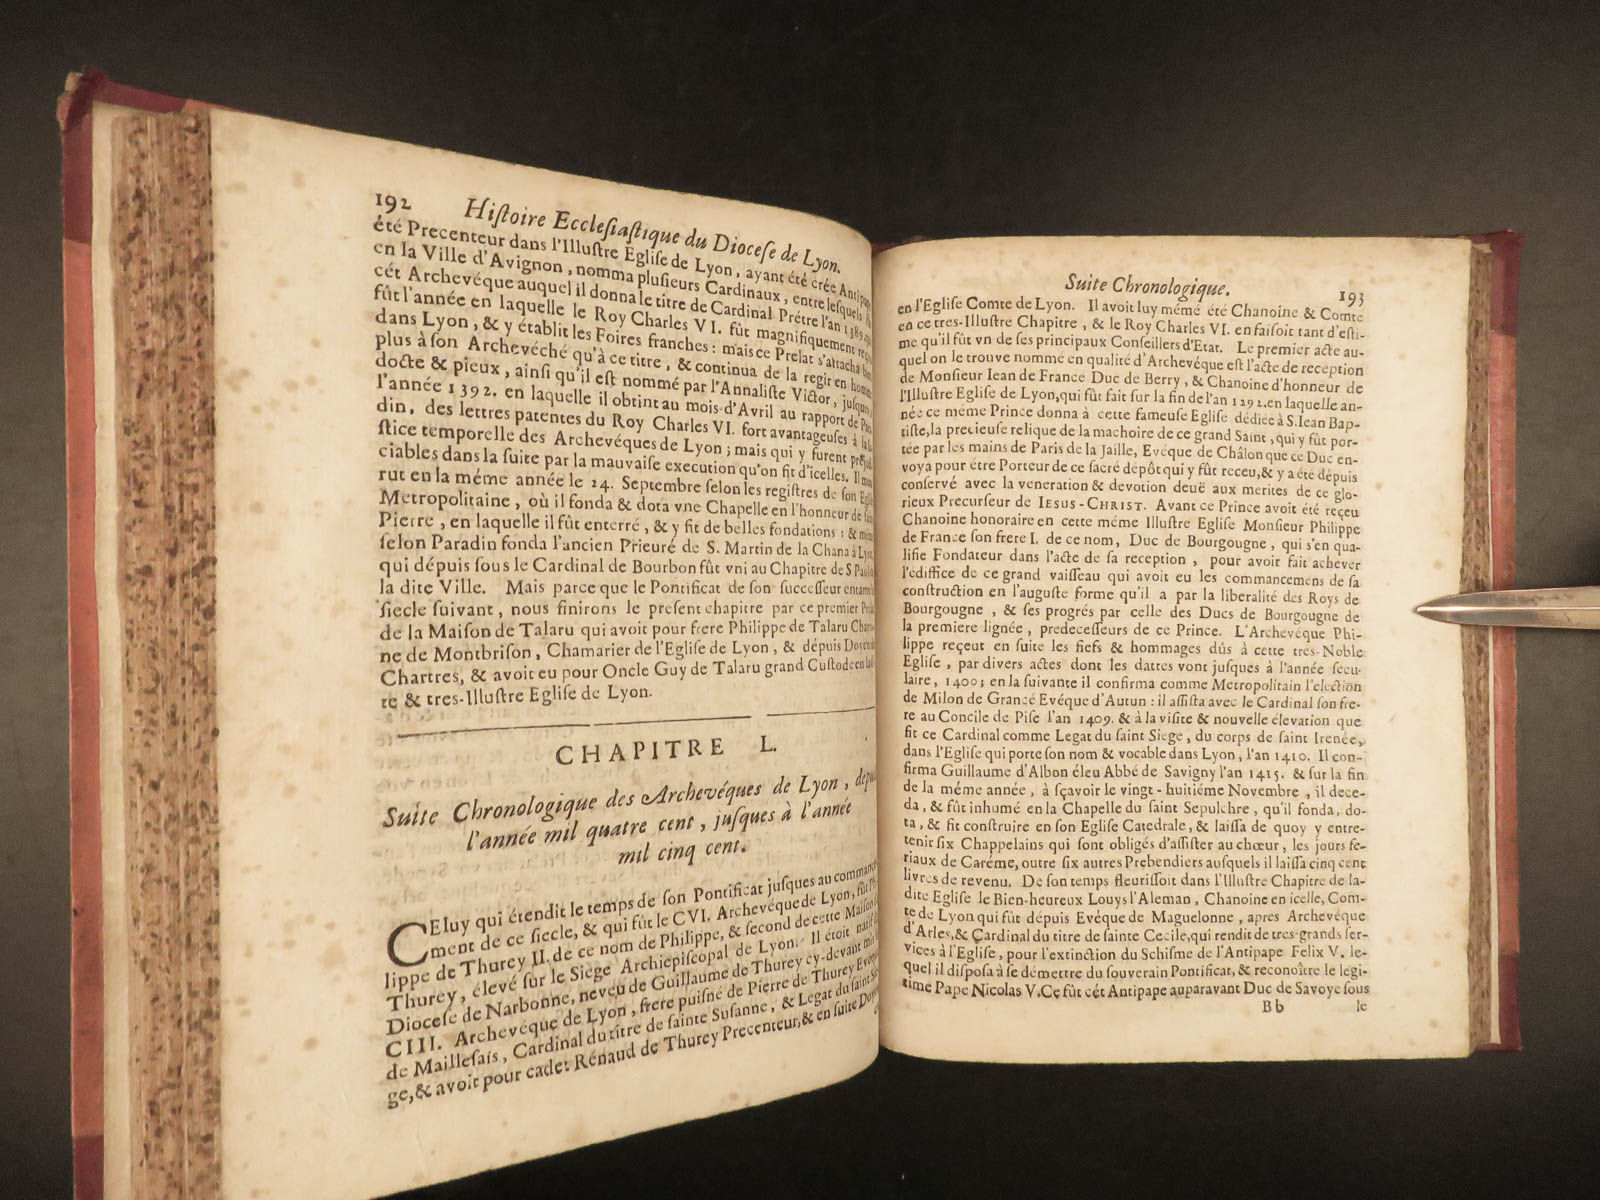 192 Hiſtoire Eccleſiaſtique du Dioceſe de Lyon.
été Precenteur dans l'Illuſtre Egliſe de Lyon, ayant été crée
en la Ville d'Avignon, nomma pluſieurs Cardinaux, entre leſquels
cét Archevéque auquel il donna le titre de Cardinal Prétre l'an 1389.
fût l'année en laquelle le Roy Charles VI. fût magnifiquement
dans Lyon, & y établit les Foires franches: mais ce Prelat s'attacha
plus à ſon Archevéché qu'à ce titre, & continua de la regir en
docte & pieux, ainſi qu'il eſt nommé par l'Annaliſte Victor,
l'année 1392. en laquelle il obtint au mois d'Avril au rapport de
din, des lettres patentes du Roy Charles VI. fort avantageuſes à
ſtice temporelle des Archevéques de Lyon; mais qui y furent
ciables dans la ſuite par la mauvaiſe execution qu'on fit d'icelles. Il
rut en la méme année le 24. Septembre ſelon les regiſtres de ſon
Metropolitaine, où il fonda & dota vne Chapelle en l'honneur de
Pierre, en laquelle il fût enterré, & y fit de belles fondations: &
ſelon Paradin fonda l'ancien Prieuré de S. Martin de la Chana à
qui dépuis ſous le Cardinal de Bourbon fût vni au Chapitre de S
la dite Ville. Mais parce que le Pontificat de ſon ſucceſſeur
ſiecle ſuivant, nous finirons le preſent chapitre par ce premier
de la Maiſon de Talaru qui avoit pour frere Philippe de Talaru
ne de Montbriſon, Chamarier de l'Egliſe de Lyon, & dépuis Doyen
Chartres, & avoit eu pour Oncle Guy de Talaru grand Cuſtode en
te & tres-Illuſtre Egliſe de Lyon.
CHAPITRE L.
Suite Chronologique des Archevéques de Lyon,
l'année mil quatre cent, juſques à l'année
mil cinq cent.
CEluy qui étendit le temps de ſon Pontificat juſques au
ment de ce ſiecle, & qui fût le CVI. Archevéque de Lyon, fût
lippe de Thurey II. de ce nom de Philippe, & ſecond de cette Maiſon
Thurey, élevé ſur le Siege Archiepiſcopal de Lyon. Il étoit natif
Dioceſe de Narbonne, neveu de Guillaume de Thurey cy-devant
CIII. Archevéque de Lyon, frere puiſné de Pierre de Thurey
deAilleſais, Cardinal du titre de ſainte Suſanne, & Legat du ſaint
ge, & avoit pour cadet Rénaud de Thurey Precenteur, & en ſuite
Suite Chronologique. 193
en l'Egliſe Comte de Lyon. Il avoit luy méme été Chanoine & Comte
en ce tres-Illuſtre Chapitre, & le Roy Charles VI. en faiſoit tant d'eſti-
me qu'il fût vn de ſes principaux Conſeillers d'Etat. Le premier acte au-
quel on le trouve nommé en qualité d'Archevéque eſt l'acte de reception
de Monſieur Iean de France Duc de Berry, & Chanoine d'honneur de
l'Illuſtre Egliſe de Lyon, qui fût fait ſur la fin de l'an 1292. en laquelle an-
née ce méme Prince donna à cette fameuſe Egliſe dédiée à S. Iean Bap-
tiſte, la precieuſe relique de la machoire de ce grand Saint, qui y fût por-
tée par les mains de Paris de la Jaille, Evéque de Châlon que ce Duc en-
voya pour étre Porteur de ce ſacré dépôt qui y fût receu, & y a été dépuis
conſervé avec la veneration & devotion deuë aux merites de ce glo-
rieux Precurſeur de IESUS-CHRIST. Avant ce Prince avoit été reçeu
Chanoine honoraire en cette méme Illuſtre Egliſe Monſieur Philippe
de France ſon frere I. de ce nom, Duc de Bourgougne, qui s'en qua-
lifie Fondateur dans l'acte de ſa reception, pour avoir fait achever
l'édiffice de ce grand vaiſſeau qui avoit eu les commancemens de ſa
conſtruction en l'auguſte forme qu'il a par la liberalité des Roys de
Bourgougne, & ſes progrés par celle des Ducs de Bourgougne de
la premiere lignée, predeceſſeurs de ce Prince. L'Archevéque Phi-
lippe reçeut en ſuite les fiefs & hommages dûs à cette tres-Noble
Egliſe, par divers actes dont les dattes vont juſques à l'année ſecu-
laire, 1400; en la ſuivante il confirma comme Metropolitain l'election
de Milon de Grancé Evéque d'Autun: il aſſiſta avec le Cardinal ſon fre-
re au Concile de Piſe l'an 1409. & à la viſite & nouvelle élevation que
fit ce Cardinal comme Legat du ſaint Siege, du corps de ſaint Irenée,
dans l'Egliſe qui porte ſon nom & vocable dans Lyon, l'an 1410. Il con-
firma Guillaume d'Albon éleu Abbé de Savigny l'an 1415. & ſur la fin
de la méme année, à ſçavoir le vingt-huitiéme Novembre, il dece-
da, & fût inhumé en la Chapelle du ſaint Sepulchre, qu'il fonda, do-
ta, & fit conſtruire en ſon Egliſe Catedrale, & laiſſa de quoy y entre-
tenir ſix Chappelains qui ſont obligés d'aſſiſter au chœur, les jours fe-
riaux de Caréme, outre ſix autres Prebendiers auſquels il laiſſa cinq cent
livres de revenu. De ſon temps fleuriſſoit dans l'Illuſtre Chapitre de la-
dite Egliſe le Bien-heureux Louys l'Aleman, Chanoine en icelle, Com-
te de Lyon qui fût dépuis Evéque de Maguelonne, apres Archevéque
d'Arles, & Cardinal du titre de ſainte Cecile, qui rendit de tres-grands ſer-
vices à l'Egliſe, pour l'extinction du Schiſme de l'Antipape Felix V. le-
quel il diſpoſa à ſe démettre du ſouverain Pontificat, & reconoître le legi-
time Pape Nicolas V. Ce fût cét Antipape auparavant Duc de Savoye ſous
Bb le